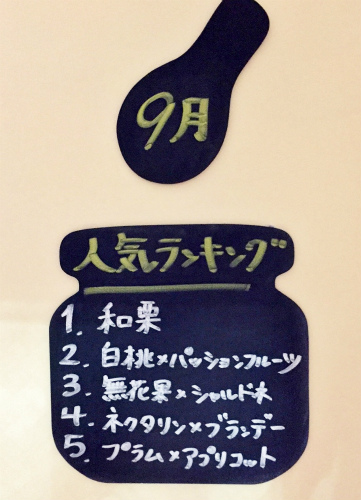 9月
人気ランキング
1. 和栗
2. 白桃×パッションフルーツ
3. 無花果×シャルドネ
4. ネクタリン×ブランデー
5. プラム×アプリコット